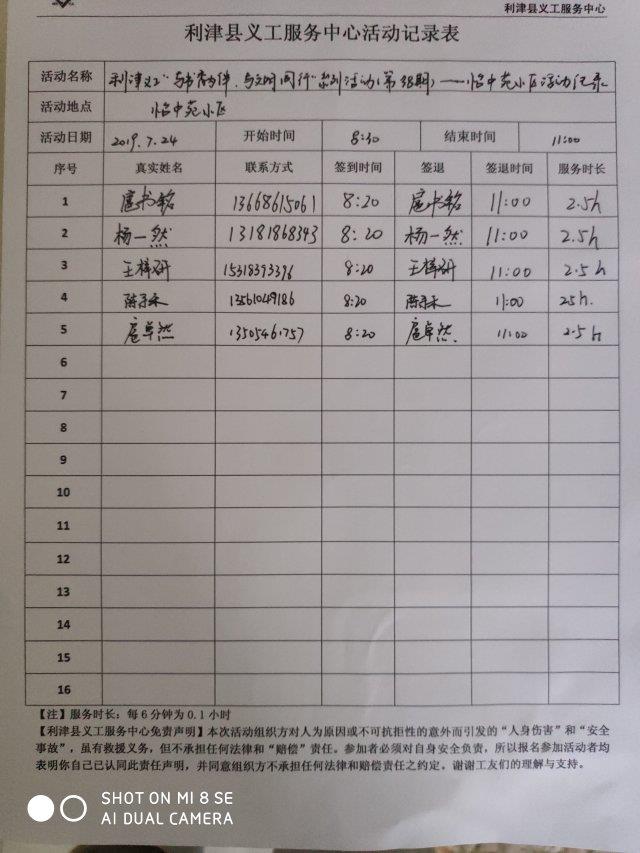 利津县义工服务中心
利津县义工服务中心活动记录表
活动名称 利津义工"与书香为伴,与文明同行"系列活动(第38期)——怡中苑小区活动记录
活动地点 怡中苑小区
活动日期 2019.7.24 开始时间 8:30 结束时间 11:00
序号 真实姓名 联系方式 签到时间 签退 签退时间 服务时长
1 扈书铭 13668615061 8:20 扈书铭 11:00 2.5h
2 杨一然 13181868343 8:20 杨一然 11:00 2.5h
3 王梓研 15318393396 8:20 王梓研 11:00 2.5h
4 13561049186 8:20 11:00 25h.
5 扈卓然 13505461757 8:20 扈卓然 11:00 2.5h
6
7
8
9
10
11
12
13
14
15
16
【注】服务时长:每6分钟为0.1小时
【利津县义工服务中心免责声明】本次活动组织方对人为原因或不可抗拒性的意外而引发的“人身伤害”和“安全
事故”,虽有救援义务,但不承担任何法律和“赔偿”责任。参加者必须对自身安全负责,所以报名参加活动者均
表明你自己已认同此责任声明,并同意组织方不承担任何法律和赔偿责任之约定。谢谢工友们的理解与支持。
SHOT ON MI 8 SE
AI DUAL CAMERA